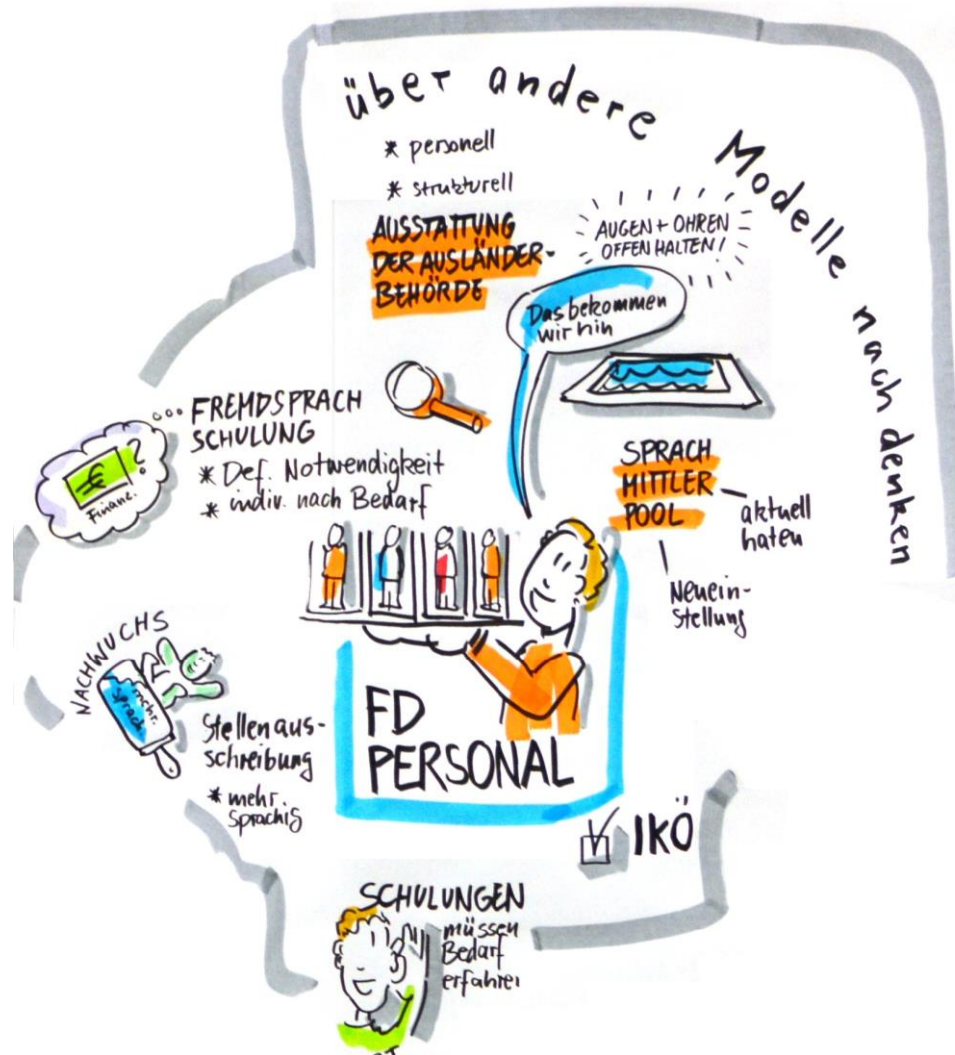 über andere Modelle nachdenken
* personell
* strukturell
AUSSTATTUNG
DER AUSLÄNDER-
BEHÖRDE
AUGEN + OHREN
OFFEN HALTEN!
Das bekommen
wir hin
FREMDSPRACH
SCHULUNG
* Def. Notwendigkeit
* indiv. nach Bedarf
€?
Finanz.
SPRACH
MITTLER
POOL
aktuell
haten
Neuein-
stellung
NACHWUCHS
mehr.
sprach
Stellenaus-
schreibung
* mehr.
sprachig
FD
PERSONAL
IKÖ
SCHULUNGEN
müssen
Bedarf